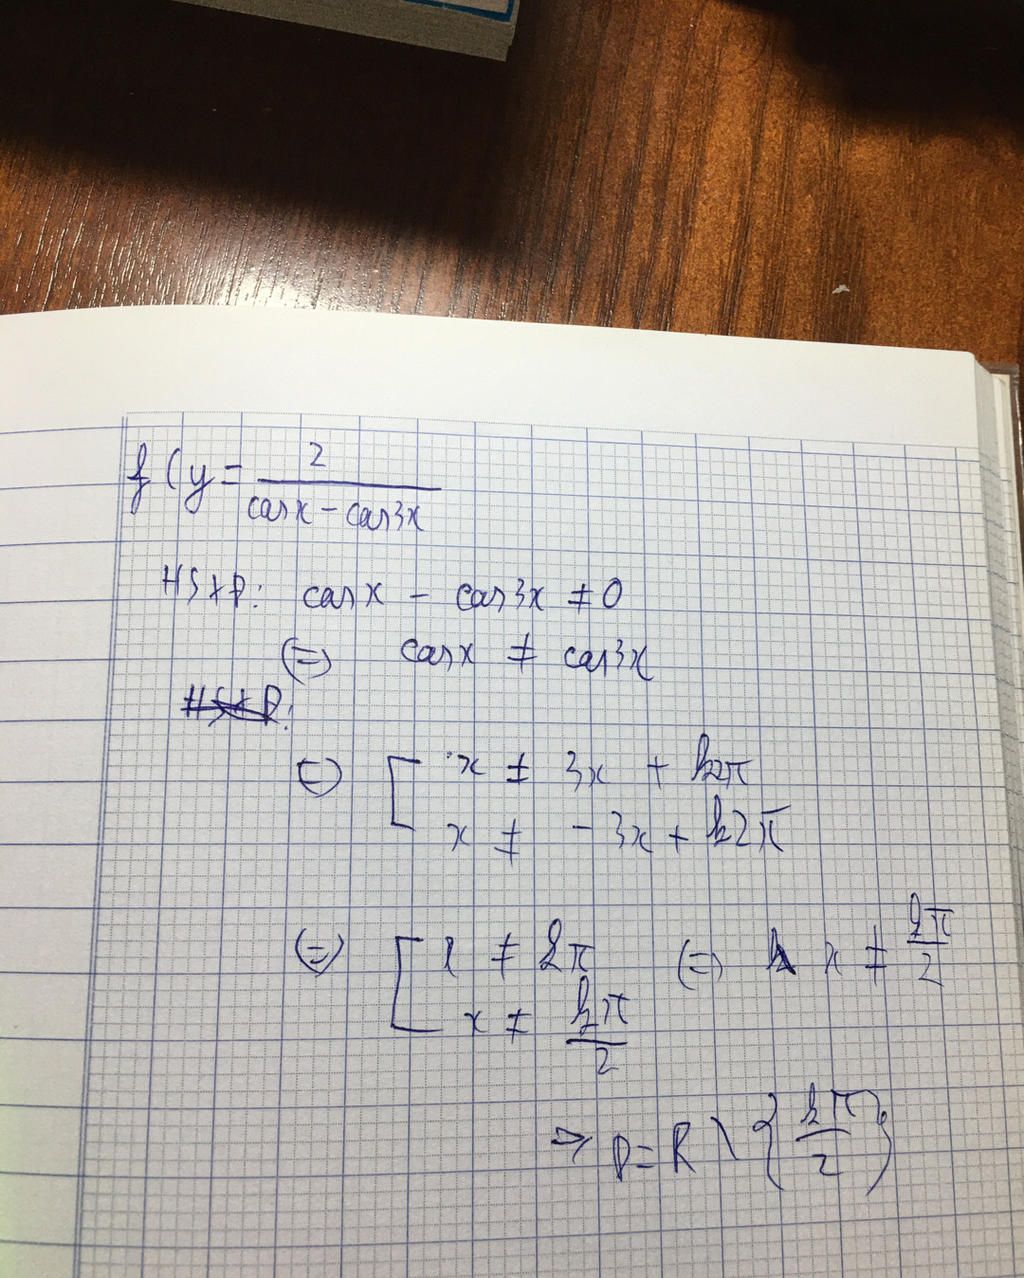 f( y = 2 / (cosx - cos3x)
HSXĐ: cosx - cos3x ≠ 0
(=) cosx ≠ cos3x
HSXĐ:
(=) [ x ≠ 3x + k2π
x ≠ - 3x + k2π
(=) [ x ≠ kπ (=) x ≠ kπ/2
x ≠ kπ/2
=> D = R \ { kπ/2 }